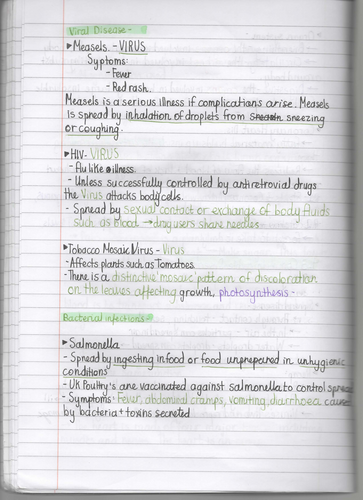 Viral Disease -
▸Measels. - VIRUS
Syptoms:
- Fever
- Red rash.
Measels is a serious illness if complications arise. Measels
is spread by inhalation of droplets from sneezing
or coughing.
▸HIV- VIRUS
- flu like illness.
- Unless successfully controlled by antiretrovial drugs
the Virus attacks body cells.
- Spread by sexual contact or exchange of body fluids
such as blood → drug users share needles
▸Tobacco Mosaic Virus - Virus
- Affects plants such as Tomatoes.
- There is a distinctive 'mosaic' pattern of discoloration
on the leaves affecting growth, photosynthesis.
Bacterial infections -
▸Salmonella -
- Spread by ingesting in food or food unprepared in unhygienic
conditions
- UK Poultry's are vaccinated against salmonella to control spread
- Symptoms: Fever, abdominal cramps, vomiting, diarrhoea caused
by bacteria + toxins secreted